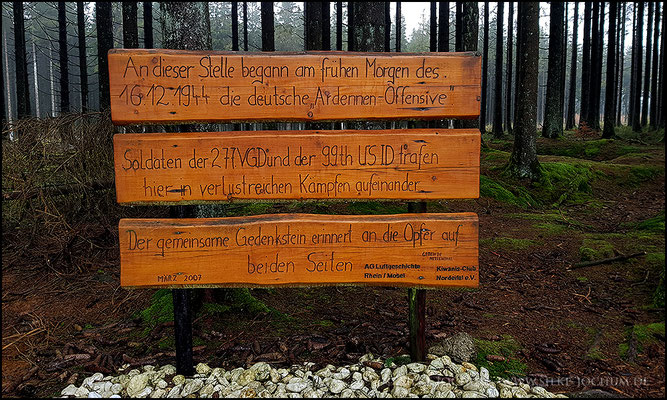 An dieser Stelle begann am frühen Morgen des
16.12.1944 die deutsche „Ardennen-Offensive"
Soldaten der 277VGD und der 99th US ID trafen
hier in verlustreichen Kämpfen aufeinander
Der gemeinsame Gedenkstein erinnert an die Opfer auf
beiden Seiten
MÄRZ 2007
AG Luftgeschichte
Rhein / Mosel
Kiwanis-Club
Nordeifel e.V.